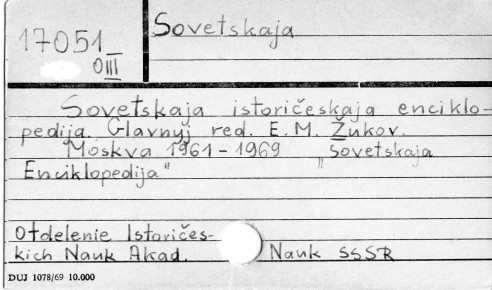 17051
OIII
Sovetskaja
Sovetskaja istoričeskaja enciklo-
pedija. Glavnyj red. E. M. Žukov.
Moskva 1961-1969 "Sovetskaja
Enciklopedija"
Otdelenie Istoričes-
kich Nauk Akad. Nauk SSSR
DUJ 1078/69 10.000